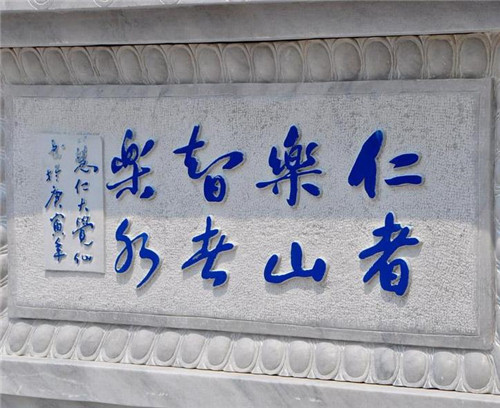 仁者
樂山
智者
樂水
慧仁大覺仙
庚寅年